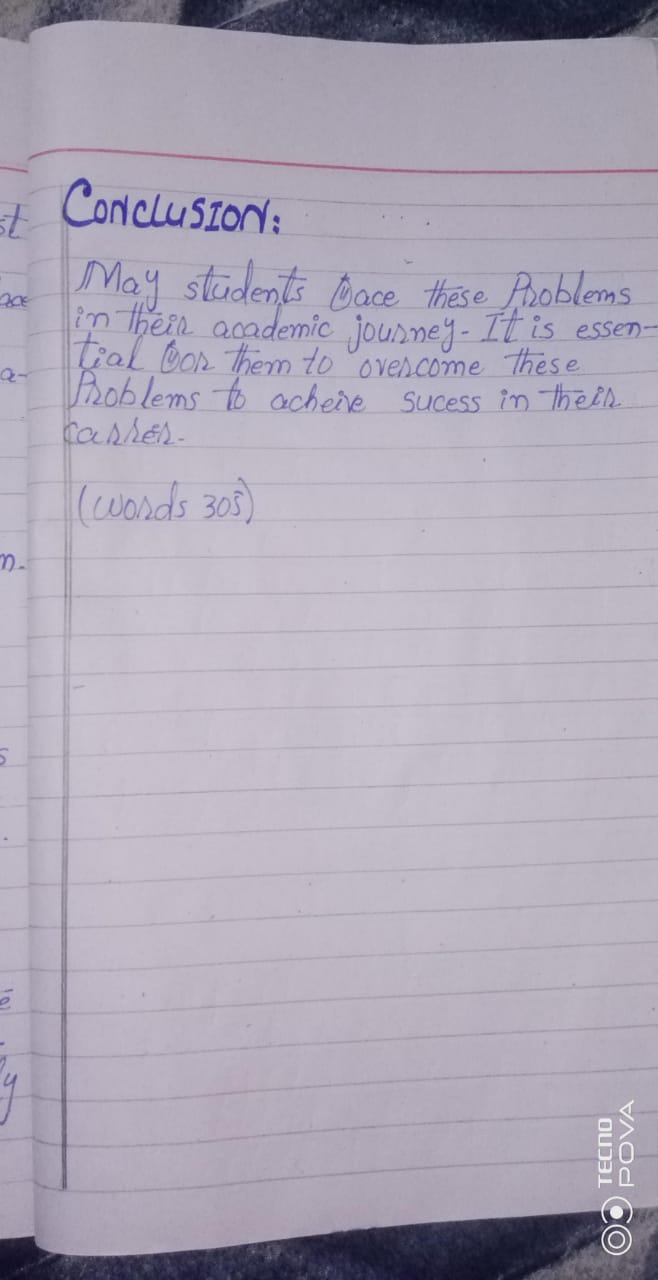 CONCLUSION:
May students face these Problems
in their academic journey. It is essen-
tial for them to overcome these
Problems to acheive sucess in their
carrer.
(words 305)
TECNO
POVA